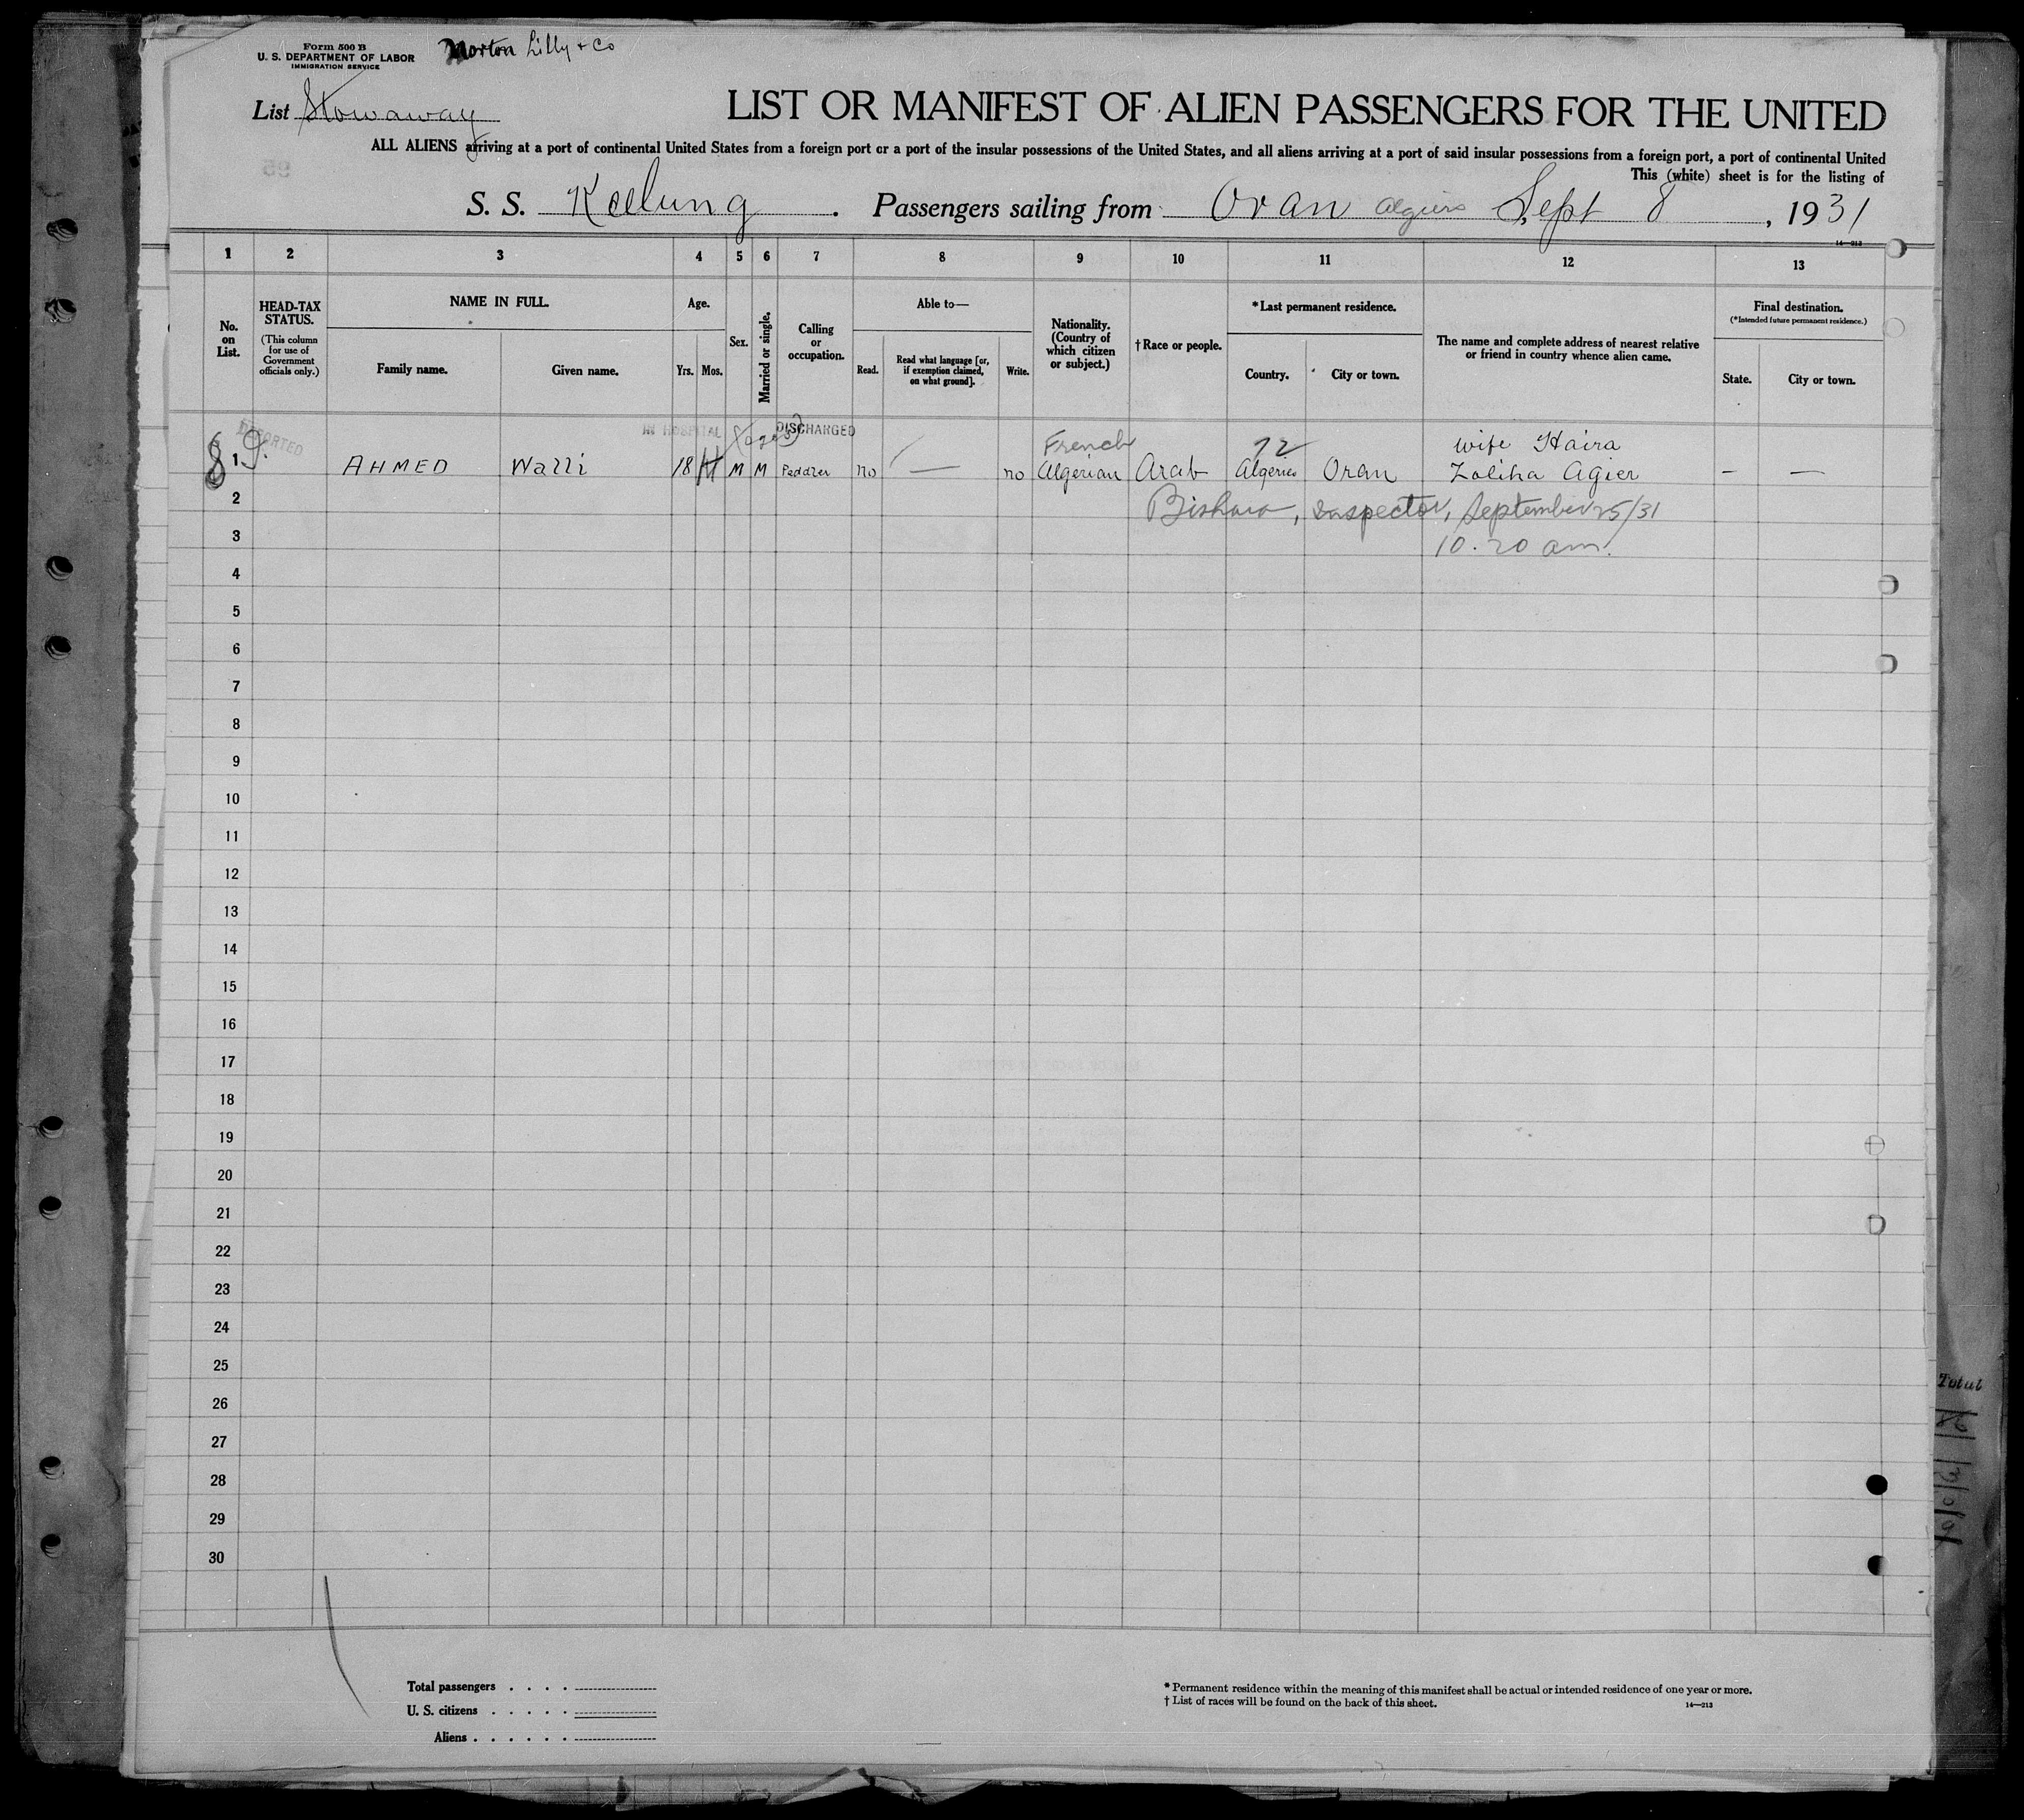 Form 500 B
U. S. DEPARTMENT OF LABOR
IMMIGRATION SERVICE
Norton Lilly & Co
List Stowaway
LIST OR MANIFEST OF ALIEN PASSENGERS FOR THE UNITED
ALL ALIENS arriving at a port of continental United States from a foreign port or a port of the insular possessions of the United States, and all aliens arriving at a port of said insular possessions from a foreign port, a port of continental United
This (white) sheet is for the listing of
S. S. Keelung. Passengers sailing from Oran Algiers Sept 8, 1931
14—213
1 2 3 4 5 6 7 8 9 10 11 12 13
No. on List.
HEAD-TAX STATUS.
(This column for use of Government officials only.)
NAME IN FULL.
Family name.
Given name.
Age.
Yrs. Mos.
Sex.
Married or single.
Calling or occupation.
Able to—
Read.
Read what language [or, if exemption claimed, on what ground].
Write.
Nationality. (Country of which citizen or subject.)
† Race or people.
*Last permanent residence.
Country.
City or town.
The name and complete address of nearest relative or friend in country whence alien came.
Final destination.
(*Intended future permanent residence.)
State.
City or town.
DEPORTED IN HOSPITAL DISCHARGED
French 72 wife Haira
1 AHMED Walli 18 M M Peddler no — no Algerian Arab Algeries Oran Zoliha Agier - —
2 Bishara, Inspector, September 25/31
3 10.20 am.
4
5
6
7
8
9
10
11
12
13
14
15
16
17
18
19
20
21
22
23
24
25
26
27
28
29
30
Total
Total passengers . . . .
U. S. citizens . . . . .
Aliens . . . . . .
* Permanent residence within the meaning of this manifest shall be actual or intended residence of one year or more.
† List of races will be found on the back of this sheet.
14—213